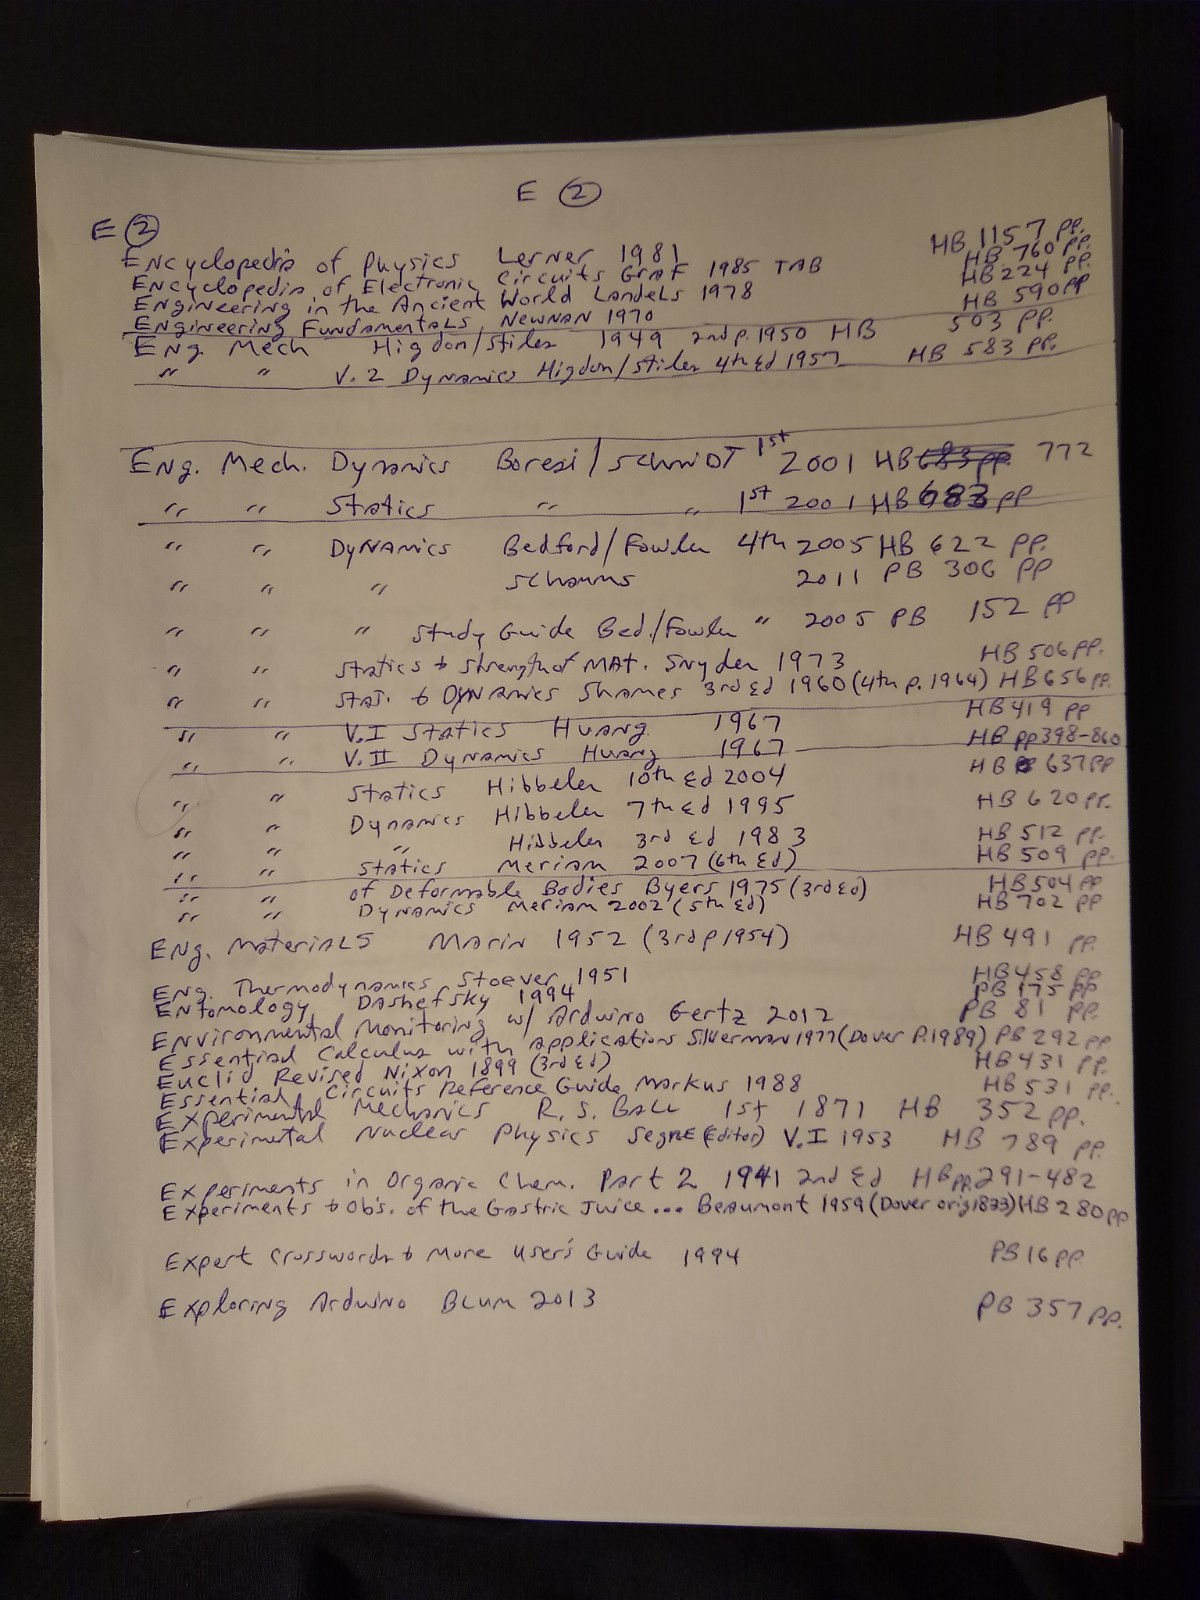 E ②
E ②
Encyclopedia of Physics Lerner 1981 HB 1157 pp.
Encyclopedia of Electronic Circuits Graf 1985 TAB HB 760 pp.
Engineering in the Ancient World Landels 1978 HB 224 pp.
Engineering Fundamentals, Newnan 1970 HB 590 pp
Eng. Mech Higdon/Stiles 1949 2nd p. 1950 HB 503 pp.
" " V. 2 Dynamics Higdon/Stiles 4th Ed 1957 HB 583 pp.
Eng. Mech. Dynamics Boresi/Schmidt 1st 2001 HB 683 pp. 772
" " Statics " " 1st 2001 HB 683 pp
" " Dynamics Bedford/Fowler 4th 2005 HB 622 pp.
" " " Schaums 2011 PB 306 pp
" " " Study Guide Bed./Fowler " 2005 PB 152 pp
" " Statics & Strength of Mat. Snyder 1973 HB 506 pp.
" " Stat. & Dynamics Shames 3rd Ed 1960 (4th p. 1964) HB 656 pp.
" " V. I Statics Huang 1967 HB 419 pp
" " V. II Dynamics Huang 1967 HB pp 398-860
" " Statics Hibbeler 10th Ed 2004 HB 637 pp
" " Dynamics Hibbeler 7th Ed 1995 HB 620 pp.
" " " Hibbeler 3rd Ed 1983 HB 512 pp.
" " Statics Meriam 2007 (6th Ed) HB 509 pp.
" " of Deformable Bodies Byers 1975 (3rd Ed) HB 504 pp
" " Dynamics Meriam 2002 (5th Ed) HB 702 pp
Eng. Materials Marin 1952 (3rd p 1954) HB 491 pp.
Eng. Thermodynamics Stoever 1951 HB 458 pp
Entomology Dashefsky 1994 PB 175 pp
Environmental Monitoring w/ Arduino Gertz 2012 PB 81 pp.
Essential Calculus with Applications Silverman 1977 (Dover p. 1989) PB 292 pp
Euclid Revised Nixon 1899 (3rd Ed) HB 431 pp.
Essential Circuits Reference Guide Markus 1988 HB 531 pp.
Experimental Mechanics R. S. Ball 1st 1871 HB 352 pp.
Experimental Nuclear Physics Segre (Editor) V. I 1953 HB 789 pp.
Experiments in Organic Chem. Part 2 1941 2nd Ed HB pp. 291-482
Experiments & Obs. of the Gastric Juice ... Beaumont 1959 (Dover orig 1833) HB 280 pp
Expert Crosswords & More User's Guide 1994 PB 16 pp
Exploring Arduino Blum 2013 PB 357 pp.